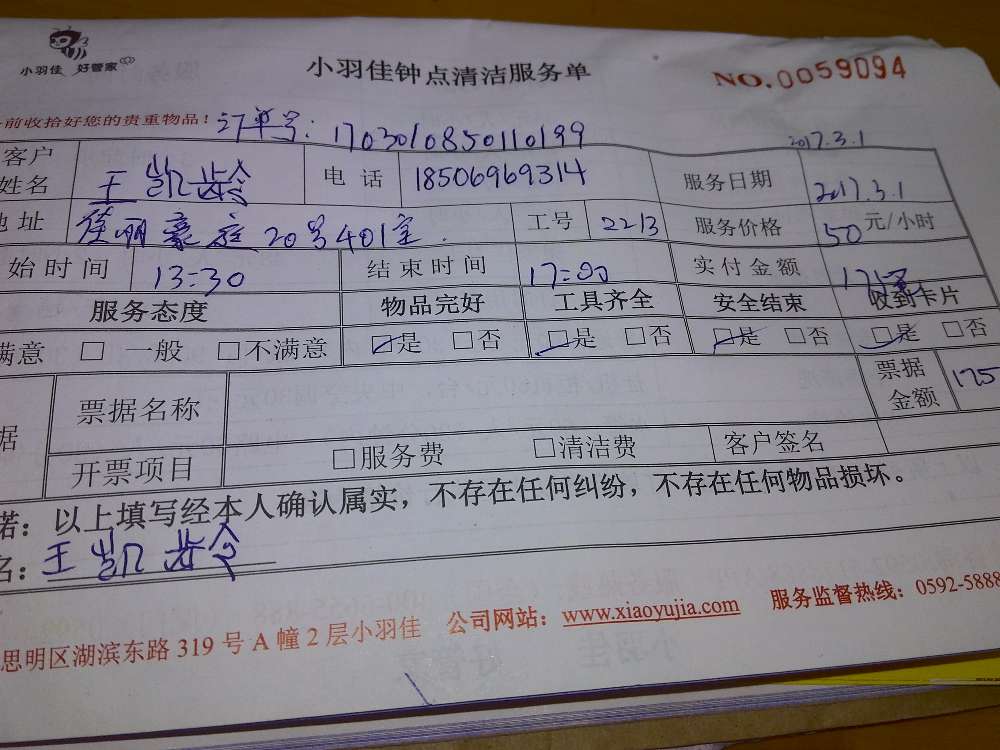 小羽佳 好管家
小羽佳钟点清洁服务单
NO.0059094
前收拾好您的贵重物品! 订单号: 1703010850110199
2017.3.1
客户姓名 王凯龄 电话 18506969314 服务日期 2017.3.1
地址 豪庭20号401室 工号 2213 服务价格 50元/小时
始时间 13:30 结束时间 17:00 实付金额
服务态度 物品完好 工具齐全 安全结束 收到卡片
满意 □ 一般 □不满意 ☑是 □否 ☑是 □否 ☑是 □否 ☑是 □否
据 票据名称 票据金额 175
开票项目 □服务费 □清洁费 客户签名
诺: 以上填写经本人确认属实，不存在任何纠纷，不存在任何物品损坏。
名: 王凯龄
思明区湖滨东路 319 号 A 幢 2 层小羽佳 公司网站: www.xiaoyujia.com 服务监督热线: 0592-5888